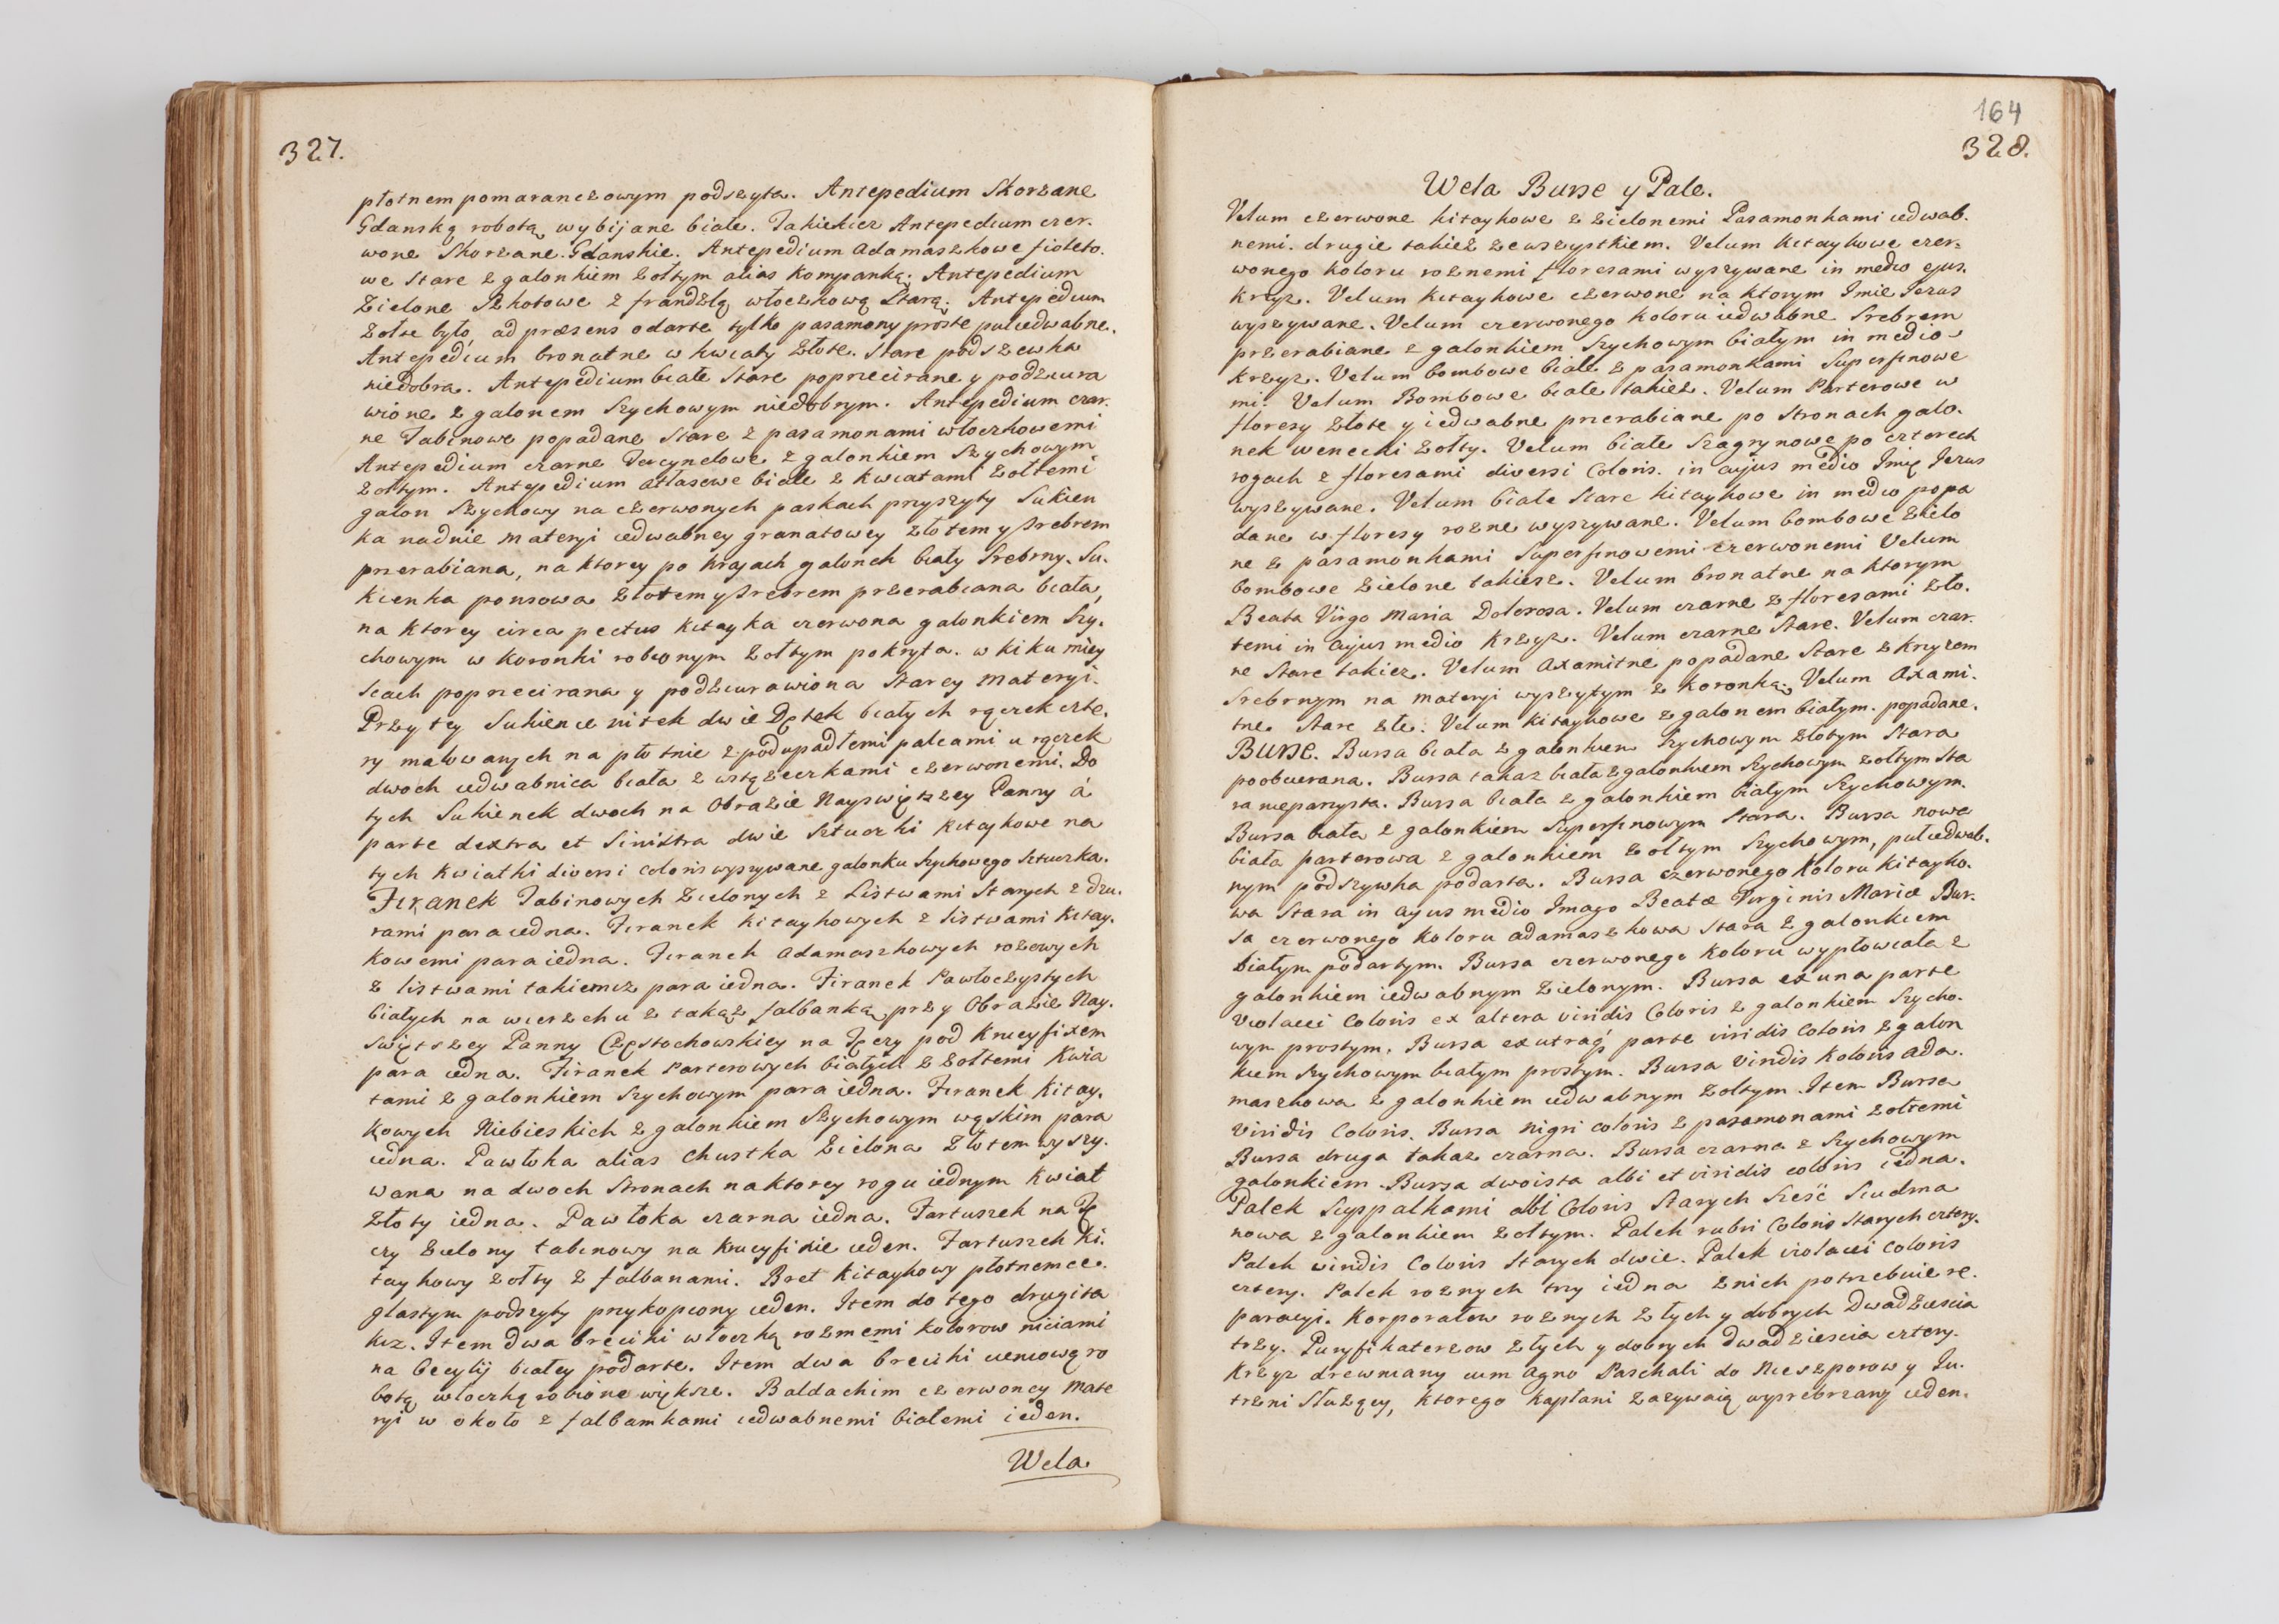 327.
płotnem pomaranczowym podszyta. Antepedium Skorzane
Gdanską robotą wybijane białe. Takiekiez Antepedium czer.
wone Skorzane. Gdanskie. Antepedium adamaszkowe fioleto.
we Stare z galonkiem żołtym alias kompanką. Antepedium
Zielone Szkotowe z frandzlą włoczkową Starą. Antepedium
żołte było, ad præsens odarte tylko pasamony proste pułiedwabne.
Antepedium bronatne w kwiaty złote. Stare podszewka
niedobra. Antepedium białe Stare poprzecirane y podziura
wione z galonem Szychowym niedobrym. Antepedium czar.
ne Tabinowe popadane Stare z pasamonami włoczkowemi
Antepedium czarne Tercynelowe z galonkiem Szychowym
żołtym. Antepedium atłasowe białe z kwiatami żołtemi
galon Szychowy na czerwonych paskach przyszyty Sukien
ka nadnie materyi iedwabney granatowey złotem y srebrem
przerabiana, na ktorey po krajach galonek biały Srebrny. Su.
kienka ponsowa złotem y srebrem przerabiana biała,
na ktorey circa pectus kitayka czerwona galonkiem Szy.
chowym w koronki robionym żołtym pokryta. w kiku miey
scach poprzecirana y podziurawiona Starey materyi.
Przy tey Sukience nitek dwie Dętek białych rączek czte.
ry malowanych na płotnie z podupadłemi palcami u rączek
dwoch iedwabnica biała z wstążeczkami czerwonemi. Do
tych Sukienek dwoch na Obrazie Nayswiętszey Panny á
parte dextra et Sinistra dwie Sztuczki kitaykowe na
tych kwiatki diversi coloris wyszywane galonku Szychowego Sztuczka.
Firanek Tabinowych Zielonych z Listwami Starych z dziu.
rami para iedna. Firanek kitaykowych z listwami kitay.
kowemi para iedna. Firanek Adamaszkowych rożowych
z listwami takiemiz para iedna. Firanek Pawłoczystych
białych na wierzchu z takąż falbanką przy Obrazie Nay.
swiętszey Panny Częstochowskiey na Tęczy pod Krucyfixem
para iedna. Firanek Parterowych białych z żołtemi kwia
tami z galonkiem Szychowym para iedna. Firanek kitay.
kowych Niebieskich z galonkiem Szychowym wąskim para
iedna. Pawłoka alias chustka Zielona Złotem wyszy.
wana na dwoch Stronach na ktorey rogu iednym kwiat
złoty iedna. Pawłoka czarna iedna. Fartuszek na Tę
czy zielony tabinowy na Krucyfixie ieden. Fartuszek ki.
taykowy żołty z falbanami. Bret kitaykowy płotnem ce.
glastym podszyty przykopcony ieden. Item do tego drugi ta
kiz. Item dwa breciki włoczką rożnemi kolorow niciami
na becylij białey podarte. Item dwa breciki cieniową ro
botą włoczką robione większe. Baldachim czerwoney mate
ryi w około z falbamkami iedwabnemi białemi ieden.
Wela
164
328.
Wela Burse y Pale.
Velum czerwone kitaykowe z zielonemi Pasamonkami iedwab.
nemi. drugie takież ze wszystkiem. Velum kitaykowe czer.
wonego koloru rożnemi floresami wyszywane in medio ejus.
krzyz. Velum kitaykowe czerwone na ktorym Imie Jezus
wyszywane. Velum czerwonego koloru iedwabne Srebrem
przerabiane z galonkiem Szychowym białym in medio
krzyz. Velum bombowe białe z pasamonkami Superfinowe
mi. Velum Bombowe białe takież. Velum Parterowe w
floresy złote y iedwabne przerabiane po Stronach galo.
nek wenecki żołty. Velum białe Szagrynowe po czterech
rogach z floresami diversi Coloris. in cujus medio Imię Jezus
wyszywane. Velum białe Stare kitaykowe in medio popa
dane w floresy rożne wyszywane. Velum bombowe Zielo
ne z pasamonkami Superfinowemi czerwonemi Velum
bombowe zielone takiesz. Velum bronatne na ktorym
Beata Virgo Maria Dolorosa. Velum czarne z floresami żło.
temi in cujus medio krzyz. Velum czarne Stare. Velum czar.
ne Stare takiez. Velum Axamitne popadane Stare z krzyzem
Srebrnym na materyi wyszytym z koronką. Velum Axami.
tne Stare złe. Velum kitaykowe z galonem białym. popadane.
Burse. Bursa biała z galonkiem Szychowym złotym Stara
poobcierana. Bursa takaz biała z galonkiem Szychowym żołtym Sta
ra nieparzysta. Bursa biała z galonkiem białym Szychowym.
Bursa biała z galonkiem Superfinowym Stara. Bursa nowa
biała parterowa z galonkiem żołtym Szychowym, pułiedwab.
nym podszywka podarta. Bursa czerwonego koloru kitayko.
wa Stara in cujus medio Imago Beatæ Virginis Mariæ Bur.
sa czerwonego koloru adamaszkowa Stara z galonkiem
białym podartym. Bursa czerwonego koloru wypłowiała z
galonkiem iedwabnym zielonym. Bursa ex una parte
violacei Coloris ex altera viridis Coloris z galonkiem Szycho.
wym prostym. Bursa ex utráq parte viridis Coloris z galon
kiem Szychowym białym prostym. Bursa viridis koloris ada.
maszkowa z galonkiem iedwabnym żołtym. Item Bursa
viridis Coloris. Bursa nigri coloris z pasamonami żołtemi
Bursa druga takaz czarna. Bursa czarna z Szychowym
galonkiem. Bursa dwoista albi et viridis coloris iedna.
Palek Szyspalkami albi Coloris Starych Sześć Siudma
nowa z galonkiem żołtym. Palek rubri Coloris Starych cztery.
Palek viridis Coloris Starych dwie. Palek violacei Coloris
cztery. Palek rożnych trzy iedna z nich potrzebuie re.
paracyi. Korporałow rożnych złych y dobrych Dwadziescia
trzy. Puryfikaterzow złych y dobrych dwadziescia cztery.
Krzyz drewniany cum Agno Paschali do Nieszporow y Ju.
trzni Słuzący, ktorego kapłani zazywaią wysrebrzany ieden.